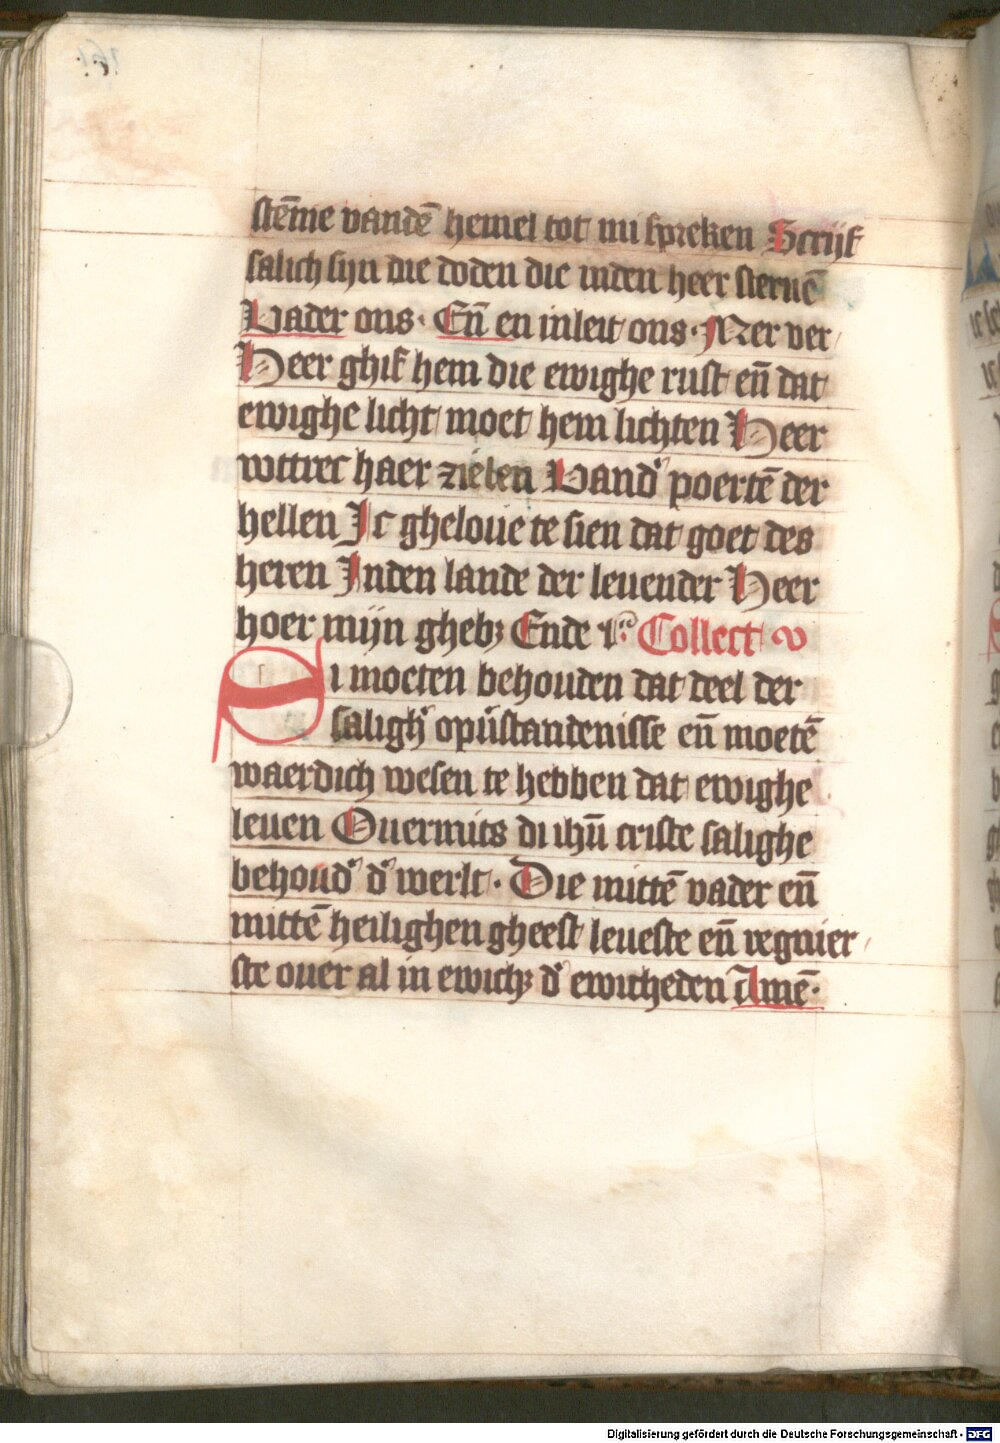 stēme vandē hemel tot mi spreken Scrijf
salich sijn die doden die inden heer steruē
Vader ons· Eñ en inleit ons· Mer ver
Heer ghif hem die ewighe rust eñ dat
ewighe licht moet hem lichten Heer
wttrec haer zielen Vand' poertē der
hellen Ic gheloue te sien dat goet des
heren Inden lande der leuender Heer
hoer mijn ghebꝫ Ende Collect
Si moeten behouden dat deel der
saligh' opu'standenisse eñ moetē
waerdich wesen te hebben dat ewighe
leuen Ouermits di ihū criste salighe
behoud' d' werlt· Die mittē vader eñ
mittē heilighen gheest leueste eñ regnier
ste ouer al in ewichꝫ d' ewicheden Amē·
Digitalisierung gefördert durch die Deutsche Forschungsgemeinschaft - DFG